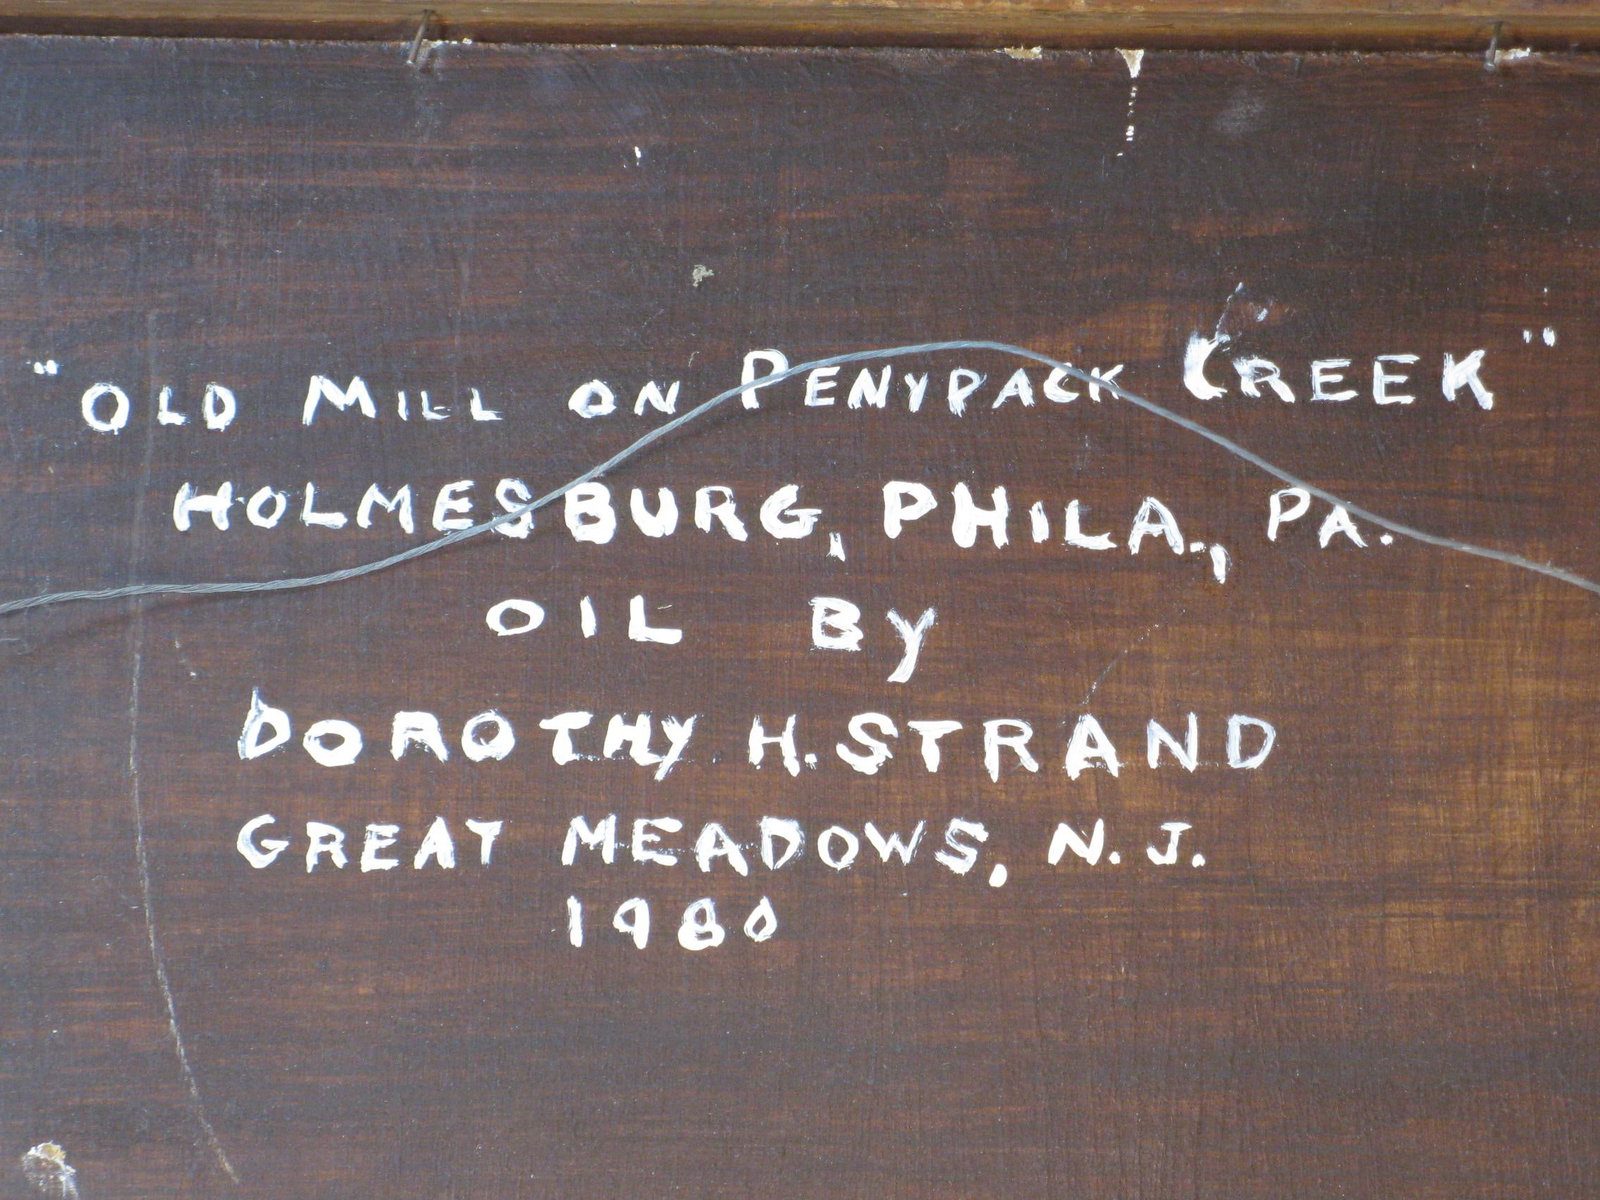 "OLD MILL ON PENYPACK CREEK"
HOLMESBURG, PHILA., PA.
OIL By
DOROTHY H. STRAND
GREAT MEADOWS, N. J.
1980